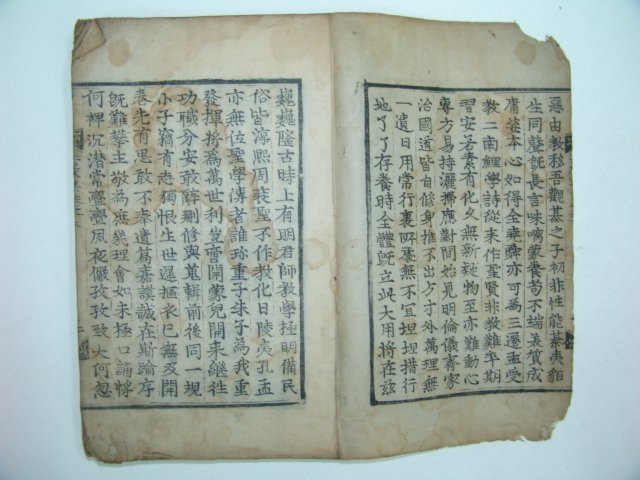 惡由敎移吾觀基之子初非性能綦夷貊
生同聲旣長言味嘀蒙養苟不端最賀成
庸並本心如得全堯舜亦可爲三遷孟受
敎二南鯉學詩從來作聖賢非敎難率期
習安若素有化久無新疑物至亦難動心
專方易持灑掃應對間始見明倫儀齊家
治國道皆自修身推不出方寸外萬理無
一遺日用常行裏所憂無不宜坦坦措行
地了了存養時全體旣立此大用將在玆
巍巍隆古時上有明君師敎學極明備民
俗皆淳熙周衰聖不作敎化日陵夷孔孟
亦無位聖學傳者誰珎重子朱子爲我重
發揮將爲萬世利豈啻開蒙兒開來繼往
功職分安敢辭刪修與蒐輯前後同一規
小子竊有志獨恨生世遲摳衣已無及開
卷先有思敢不奉遺篇嘉謨誠在斯踰序
旣難攀主敬爲庶幾理會如未極口誦將
何裨沉潛常亹亹夙夜儼孜孜致大何忽